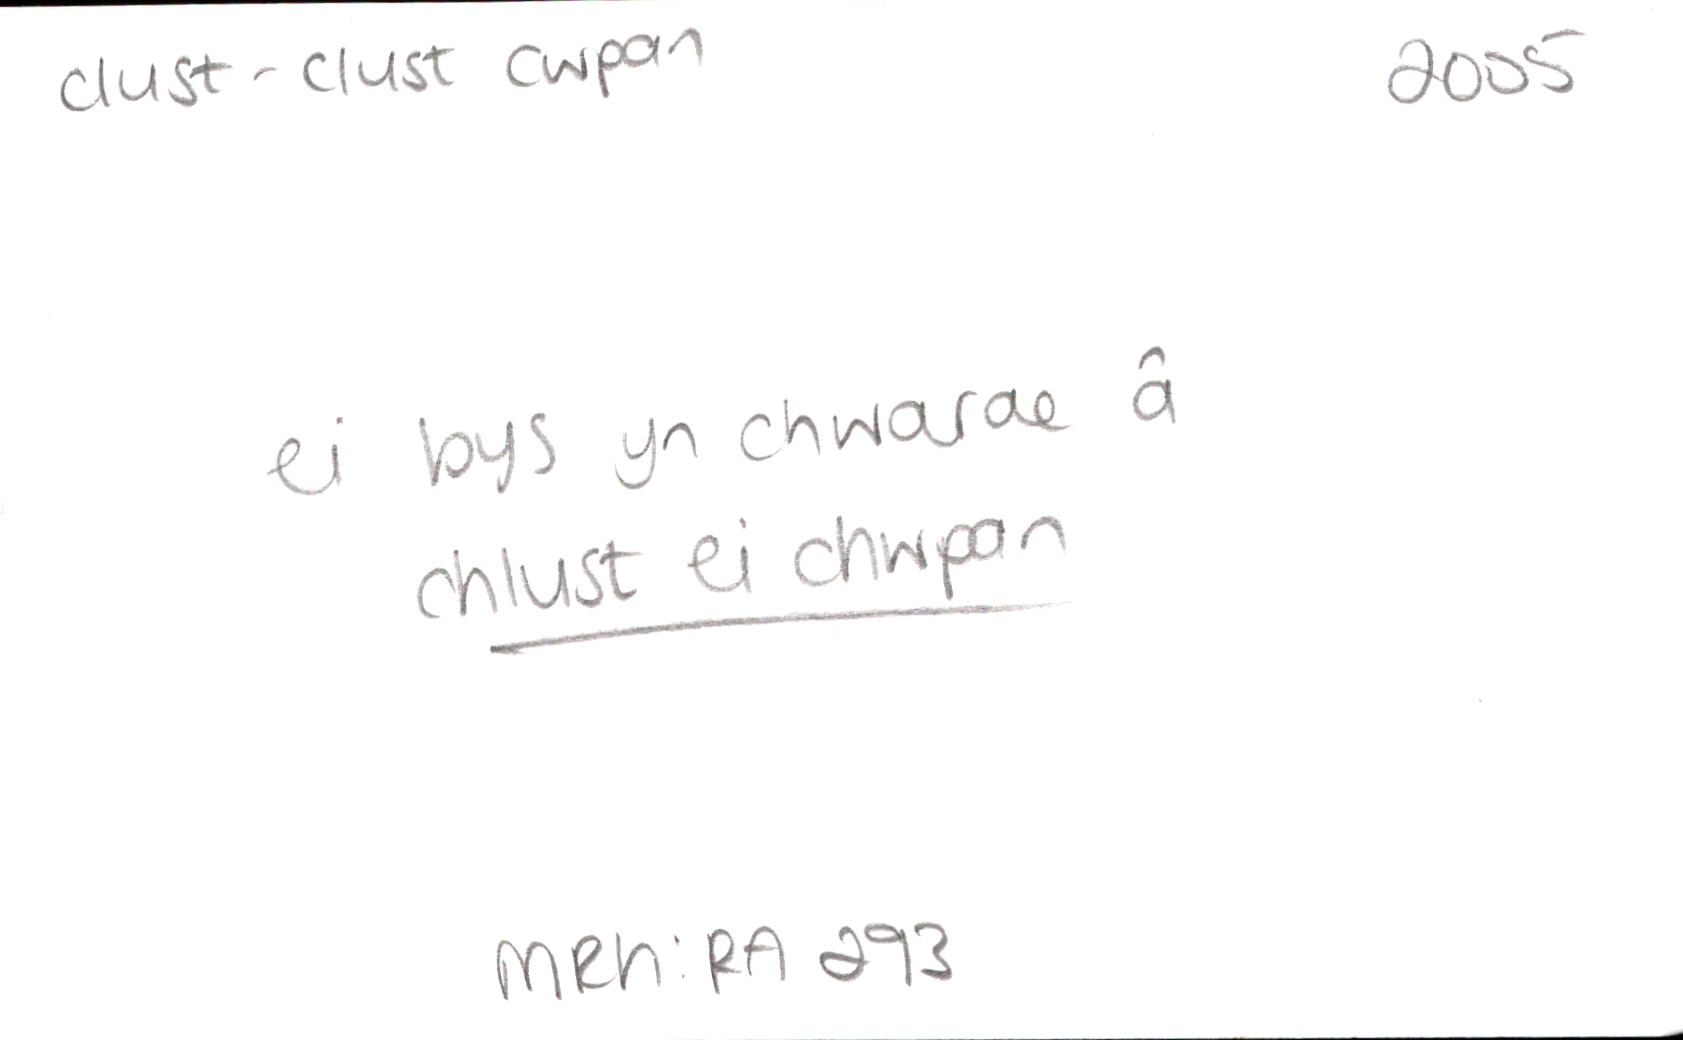 clust - clust cwpan 2005
ei bys yn chwarae â
chlust ei chwpan
MRh: RA 293